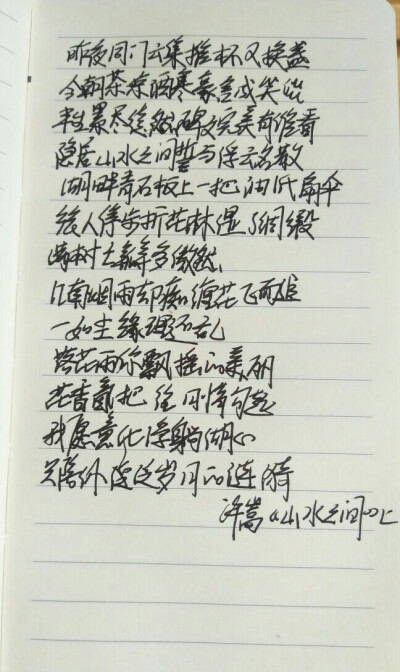 昨夜同门云集推杯又换盏
今朝茶凉酒寒豪言成笑谈
半生累尽徒然碑文完美有谁看
隐居山水之间誓与浮名散
湖畔青石板上一把油纸扇伞
人停步折花淋湿了绸缎
满树玉瓣多傲然
江南烟雨却痴缠花飞雨追
一如尘缘理还乱
落花雨你飘摇的美丽
花香氤把往日情勾起
我愿意化浮躺湖心
只陪你泛起岁月的涟漪
许嵩《山水之间》